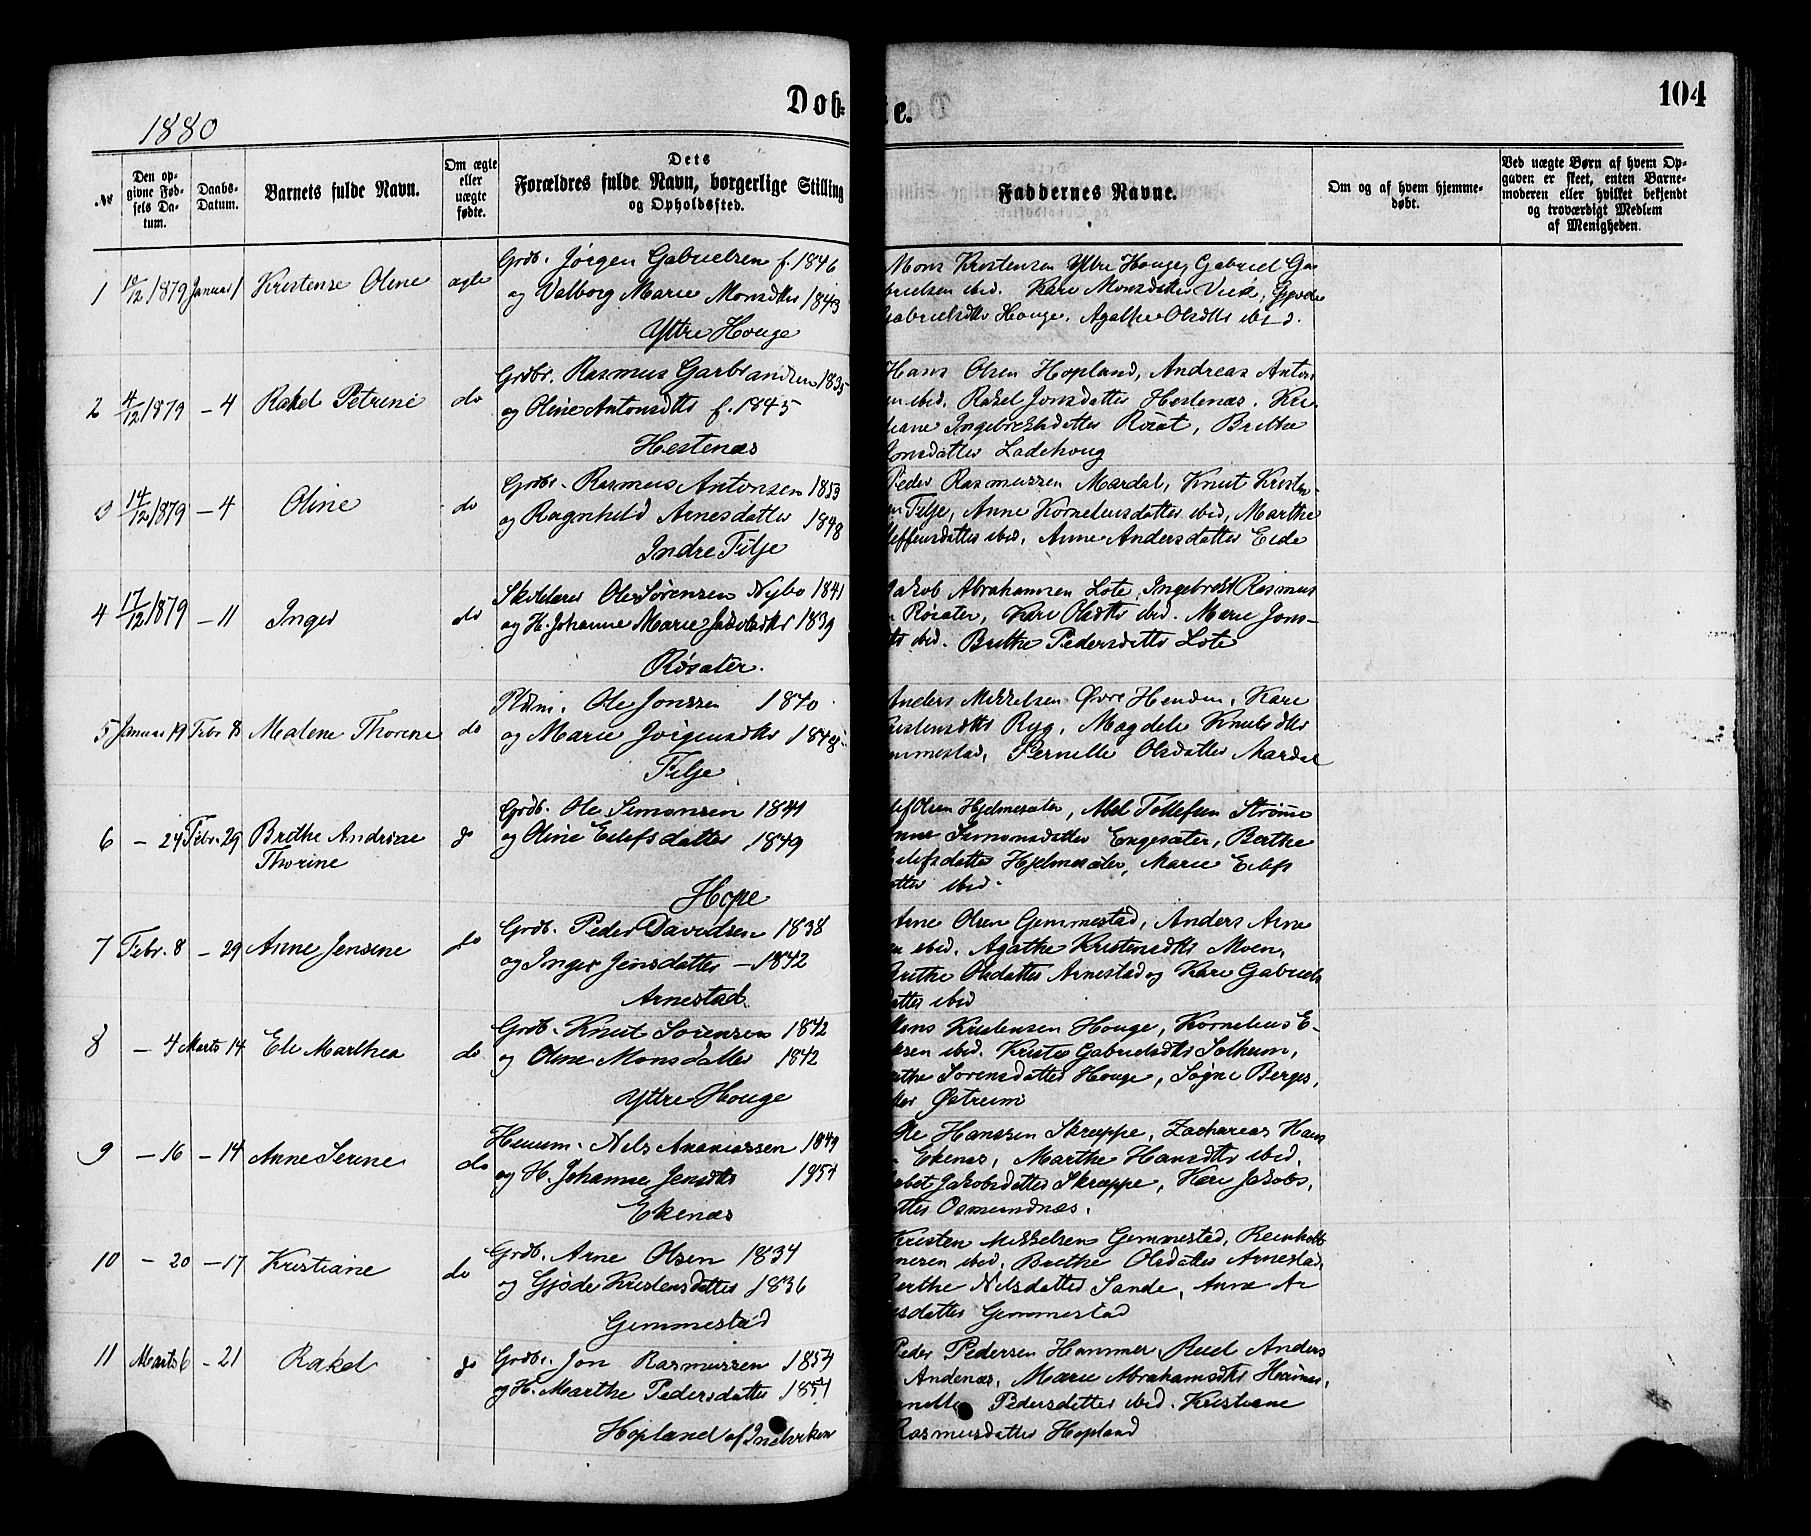 1880
Dob-
e.
104
№
Den op-
givne Fød-
sels Da-
tum.
Daabs-
Datum.
Barnets fulde Navn.
Om ægte
eller
uægte
fødte.
Dets
Forældres fulde Navn, borgerlige Stilling
og Opholdssted.
Faddernes Navne.
Om og af hvem hjemme-
døbt.
Ved uægte Børn af hvem Op-
gaven er skeet, enten Barne-
moderen eller hvilket bekjendt
og troværdigt Medlem
af Menigheden.
1 /12 1879 Januar 1 Kristense Oline ægte Grdb. Jørgen Gabrielsen f. 1846
og Valborg Marie Monsdtr 1843
Yttre Houge
Mons Kristensen Yttre Houge, Gabriel Ga
brielsen ibid. Kari Monsdatter Vik, Gjøde
Gabrielsdtr Houge. Agathe Olsdtr ibid.
2 4/12 1879 – 4 Rakel Petrine do Grdbr. Rasmus Garbrandsen 1835
og Oline Antonsdtr f. 1845
Hestenæs
Hans Olsen Hopland, Andreas Anton
en ibid. Rakel Jonsdatter Hestenæs. Kri
tiane Ingebretsdatter Røsat, Brithe
onsdatter Ladehoug
3 14/12 1879 – 4 Oline do Grdbr. Rasmus Antonsen 1853
og Ragnhild Arnesdatter 1848
Indre Filje
Peder Rasmussen Mardal, Knut Kristen
en Filje, Anne Korneliusdatter ibid, Marthe
leffensdatter ibid, Anne Andersdatter Eide
4 17/12 1879 – 11 Inger do Skolelærer Ole Sørensen Nybø 1841
og H. Johanne Marie Jakobsdtr 1839
Røsæter.
Jakob Abrahamsen Lote, Ingebret Rasmus
n Røsæter, Kari Olsdtr ibid. Marie Jons-
tr ibid. Brithe Pedersdatter Lote
5 Januar 19 Febr 8 Malene Thorine do Pldsm. Ole Jonssen 1840
og Marie Jørgensdtr 1848
Filje
Anders Mikkelsen Øvre Henden, Kari
ristensdtr Ryg, Magdeli Knutsdtr
mmestad, Pernille Olsdatter Mardal
6 – 24 Febr. 29 Brithe Andrine
Thorine do Grdb. Ole Simonsen 1841
og Oline Eilefsdatter 1849
Hope
lef Olsen Hjelmesæter, Abel Tollefsen Strømme
Anne Simonsdatter Engesæter, Berthe
Eilefsdatter Hjelmesæter, Marie Eilefs
datter ibid.
7 Febr. 8 – 29 Anne Jensine do Grdb. Peder Davidsen 1838
og Inger Jensdatter – 1842
Arnestad.
Arne Olsen Gemmestad, Anders Arne
en ibid. Agathe Kristensdtr Moen,
Brithe Olsdatter Arnestad og Kari Gabriels
datter ibid
8 – 4 Marts 14 Eli Marthea do Grdb. Knut Sørensen 1842
og Oline Monsdatter 1842
Yttre Houge
Mons Kristensen Houge, Kornelius E-
sen ibid. Kristi Gabrielsdtr Solheim,
arthe Sørensdatter Houge, Søgni Berges,
ter Østreim
9 – 16 – 14 Anne Serine do Huusm. Nils Ananiassen 1849
og H. Johanne Jensdtr 1854
Ekenæs
Ole Hanssen Skreppe, Zacharias Hans
n Ekenæs, Marthe Hansdtr ibid,
abet Jakobsdatter Skreppe, Kari Jakobs,
atter Osmundnæs.
10 – 20 – 17 Kristiane do Grdb. Arne Olsen 1834
og Gjøde Kristensdatter 1836
Gemmestad
Kristen Mikkelsen Gemmestad, Reinholt
nesen ibid, Brethe Olsdatter Arnestad,
Berthe Nilsdatter Sande, Anne Ar
esdatter Gemmestad
11 Marts 6 – 21 Rakel do Grdbr. Jon Rasmussen 1854
og H. Marthe Pedersdatter 1854
Hopland af Indviken
Peder Pedersen Hammer, Rael Anders
Andenæs, Marie Abrahamsdtr Hammer,
Pedersdatter ibid. Kristiane
Rasmusdatter Hopland